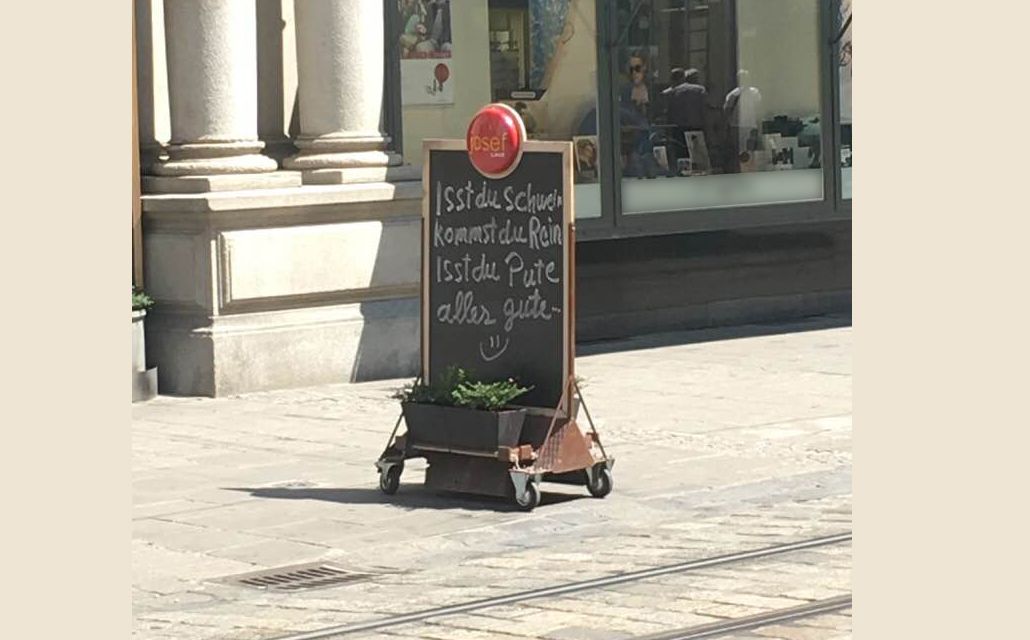 josef
LINZ
Isst du Schwein
kommst du Rein
Isst du Pute
alles gute...